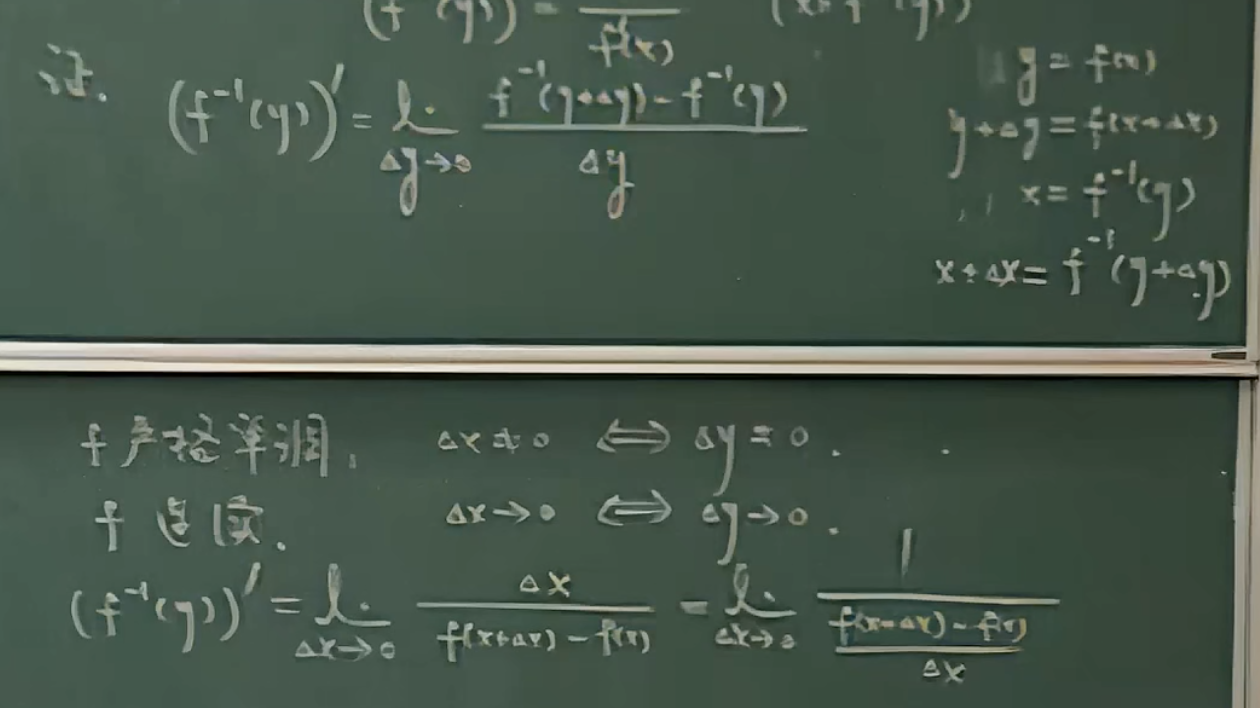 (f⁻¹(y))' = 1/f'(x) (x = f⁻¹(y))
证.
(f⁻¹(y))' = lim_{Δy→0} (f⁻¹(y+Δy) - f⁻¹(y))/Δy
y = f(x)
y+Δy = f(x+Δx)
x = f⁻¹(y)
x+Δx = f⁻¹(y+Δy)
f 严格单调. Δx ≠ 0 ⟺ Δy ≠ 0.
f 连续. Δx→0 ⟺ Δy→0.
(f⁻¹(y))' = lim_{Δx→0} Δx/(f(x+Δx) - f(x)) = lim_{Δx→0} 1/((f(x+Δx) - f(x))/Δx)